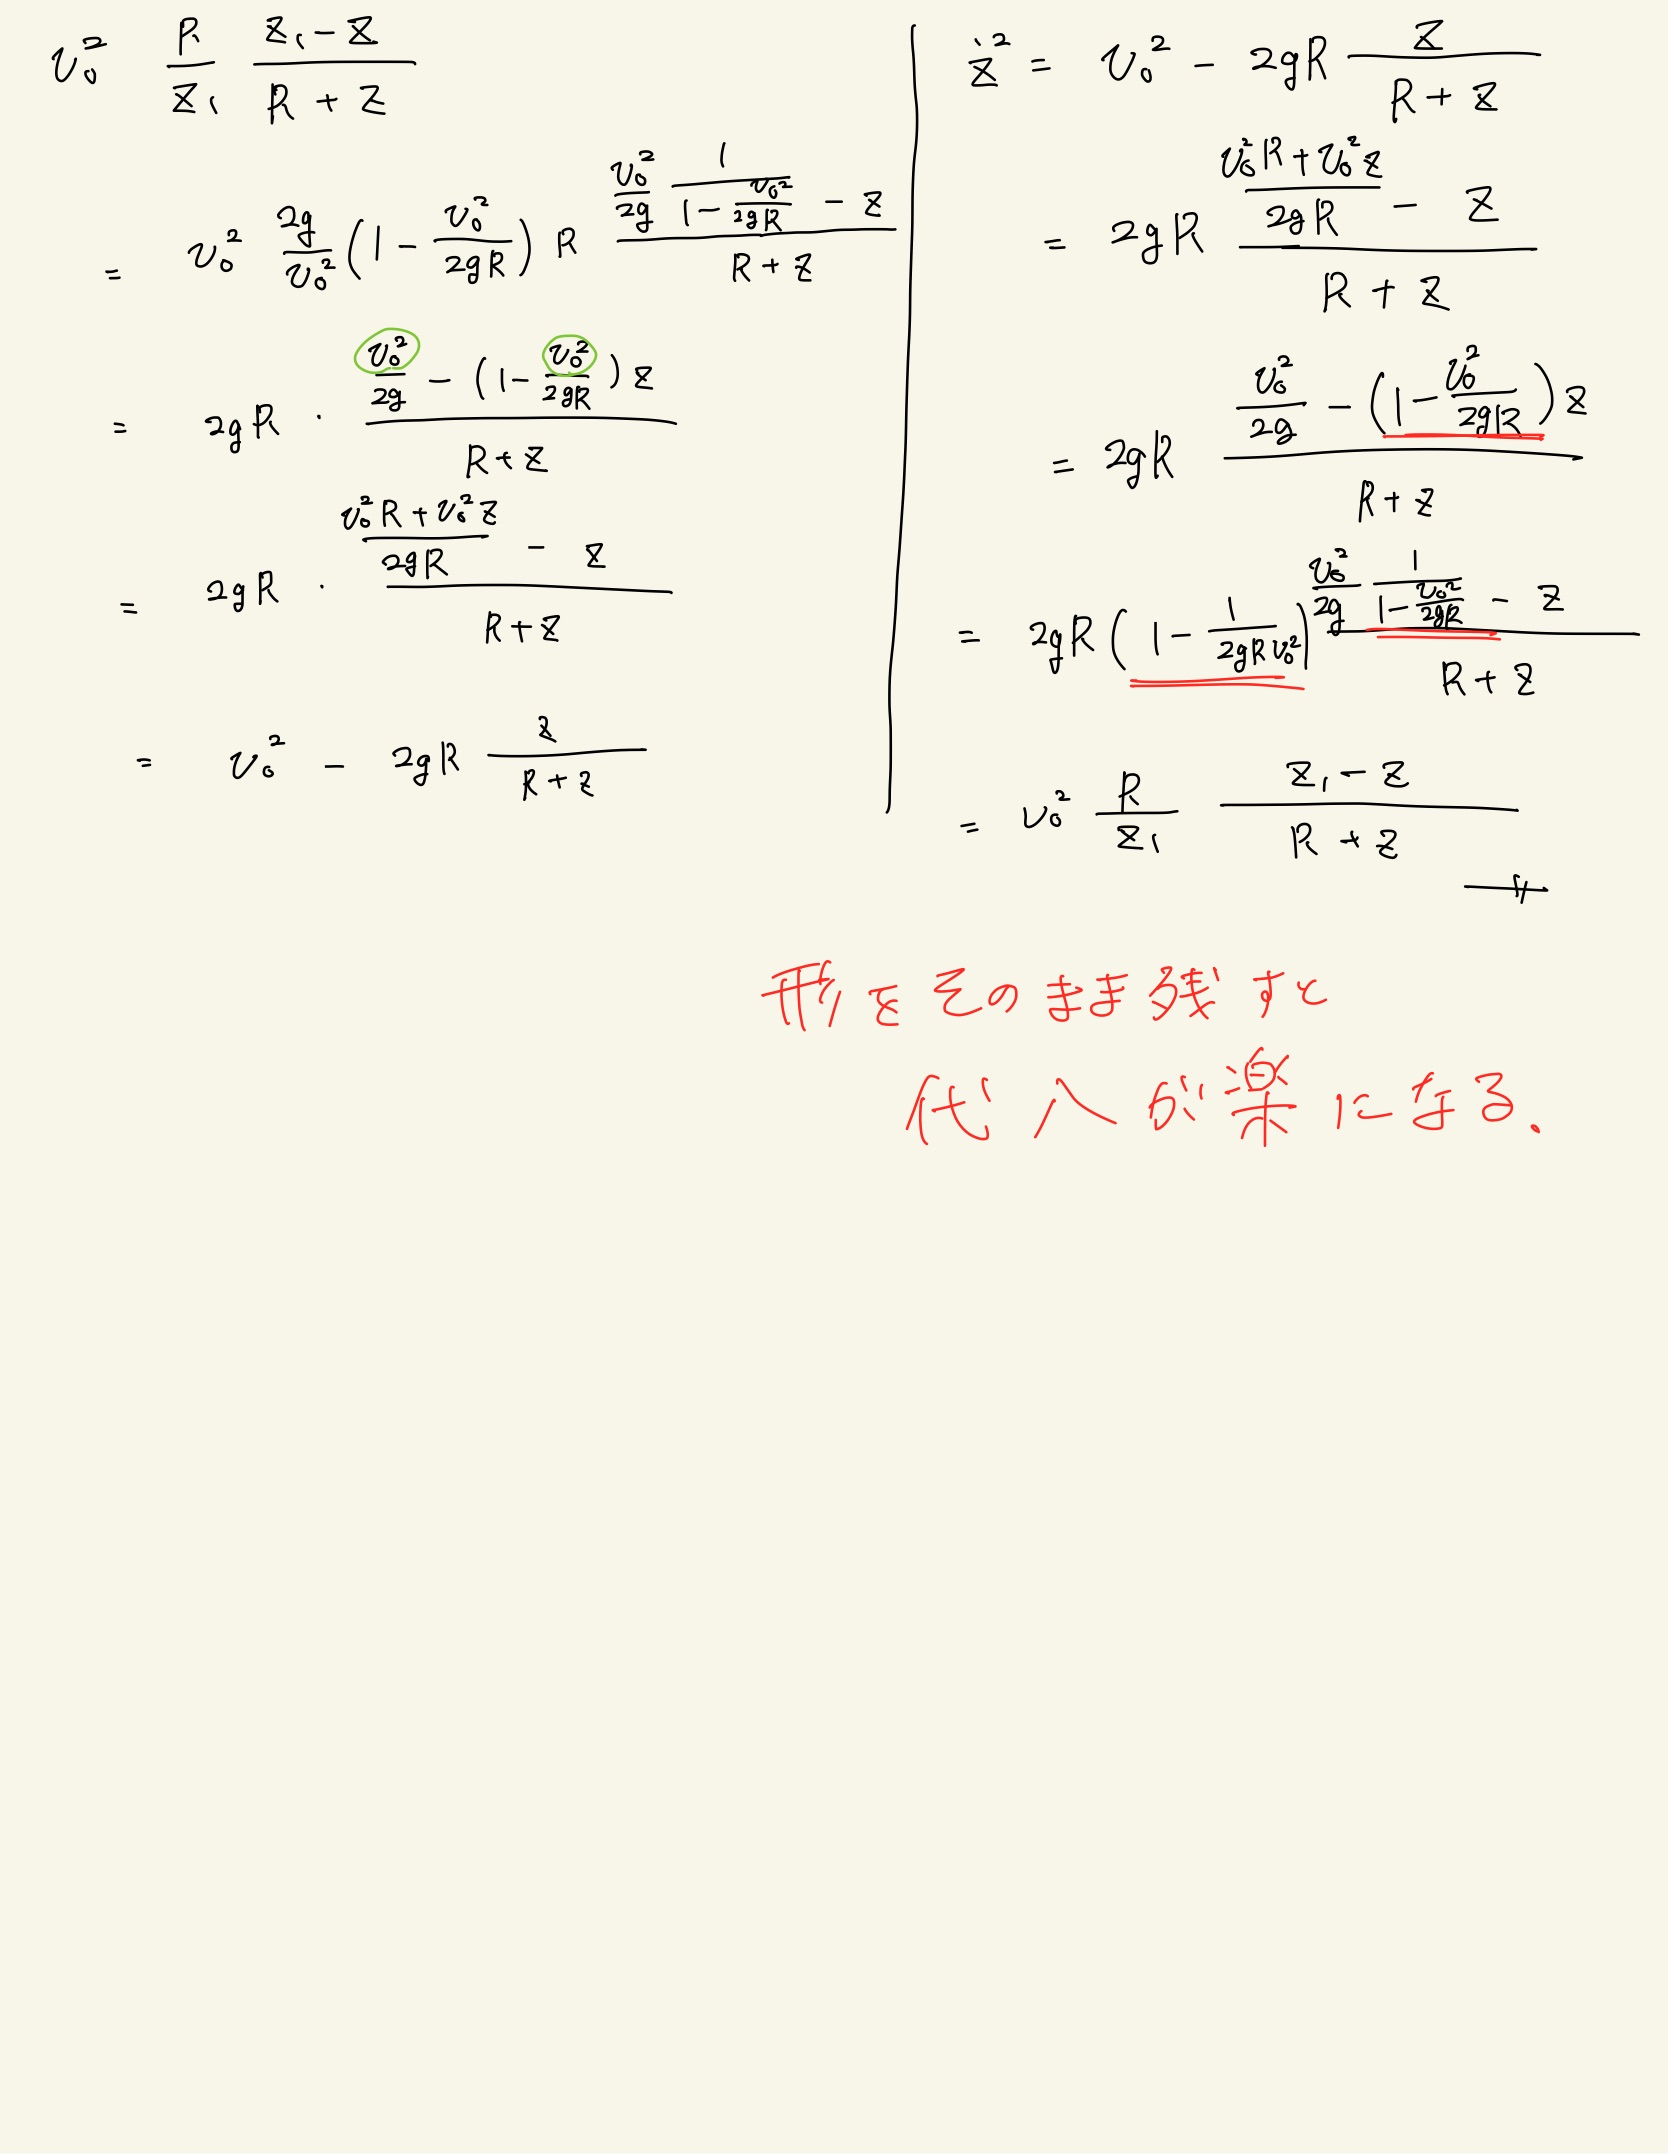 v₀² R/z₁ (z₁ - z)/(R + z)
= v₀² 2g/v₀² (1 - v₀²/2gR) R (v₀²/2g 1/(1 - v₀²/2gR) - z)/(R + z)
= 2gR · (v₀²/2g - (1 - v₀²/2gR) z)/(R + z)
= 2gR · ((v₀²R + v₀²z)/2gR - z)/(R + z)
= v₀² - 2gR z/(R + z)
ż² = v₀² - 2gR z/(R + z)
= 2gR ((v₀²R + v₀²z)/2gR - z)/(R + z)
= 2gR (v₀²/2g - (1 - v₀²/2gR) z)/(R + z)
= 2gR (1 - 1/2gRv₀²) (v₀²/2g 1/(1 - v₀²/2gR) - z)/(R + z)
= v₀² R/z₁ (z₁ - z)/(R + z)
形をそのまま残すと
代入が楽になる.